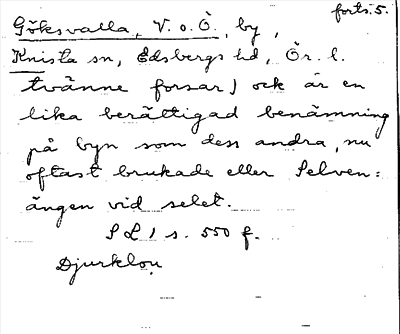 forts. 5.
Göksvalla, V. o. Ö., by,
Knista sn, Edsbergs hd, Ör. l.
tvänne forsar) ock är en
lika berättigad benämning
på byn som dess andra, nu
oftast brukade eller Selven=
ängen vid selet.
S L 1 s. 550 f.
Djurklou